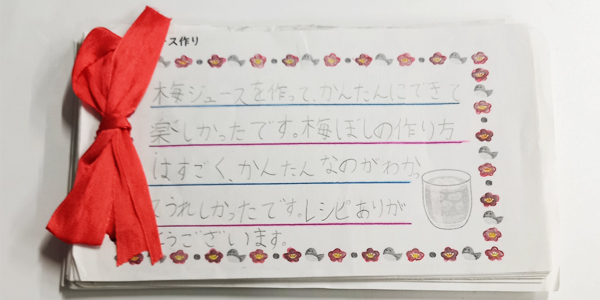 ス作り
梅ジュースを作って、かんたんにできて
楽しかったです。梅ぼしの作り方
はすごく、かんたんなのがわかっ
てうれしかったです。レシピありが
とうございます。